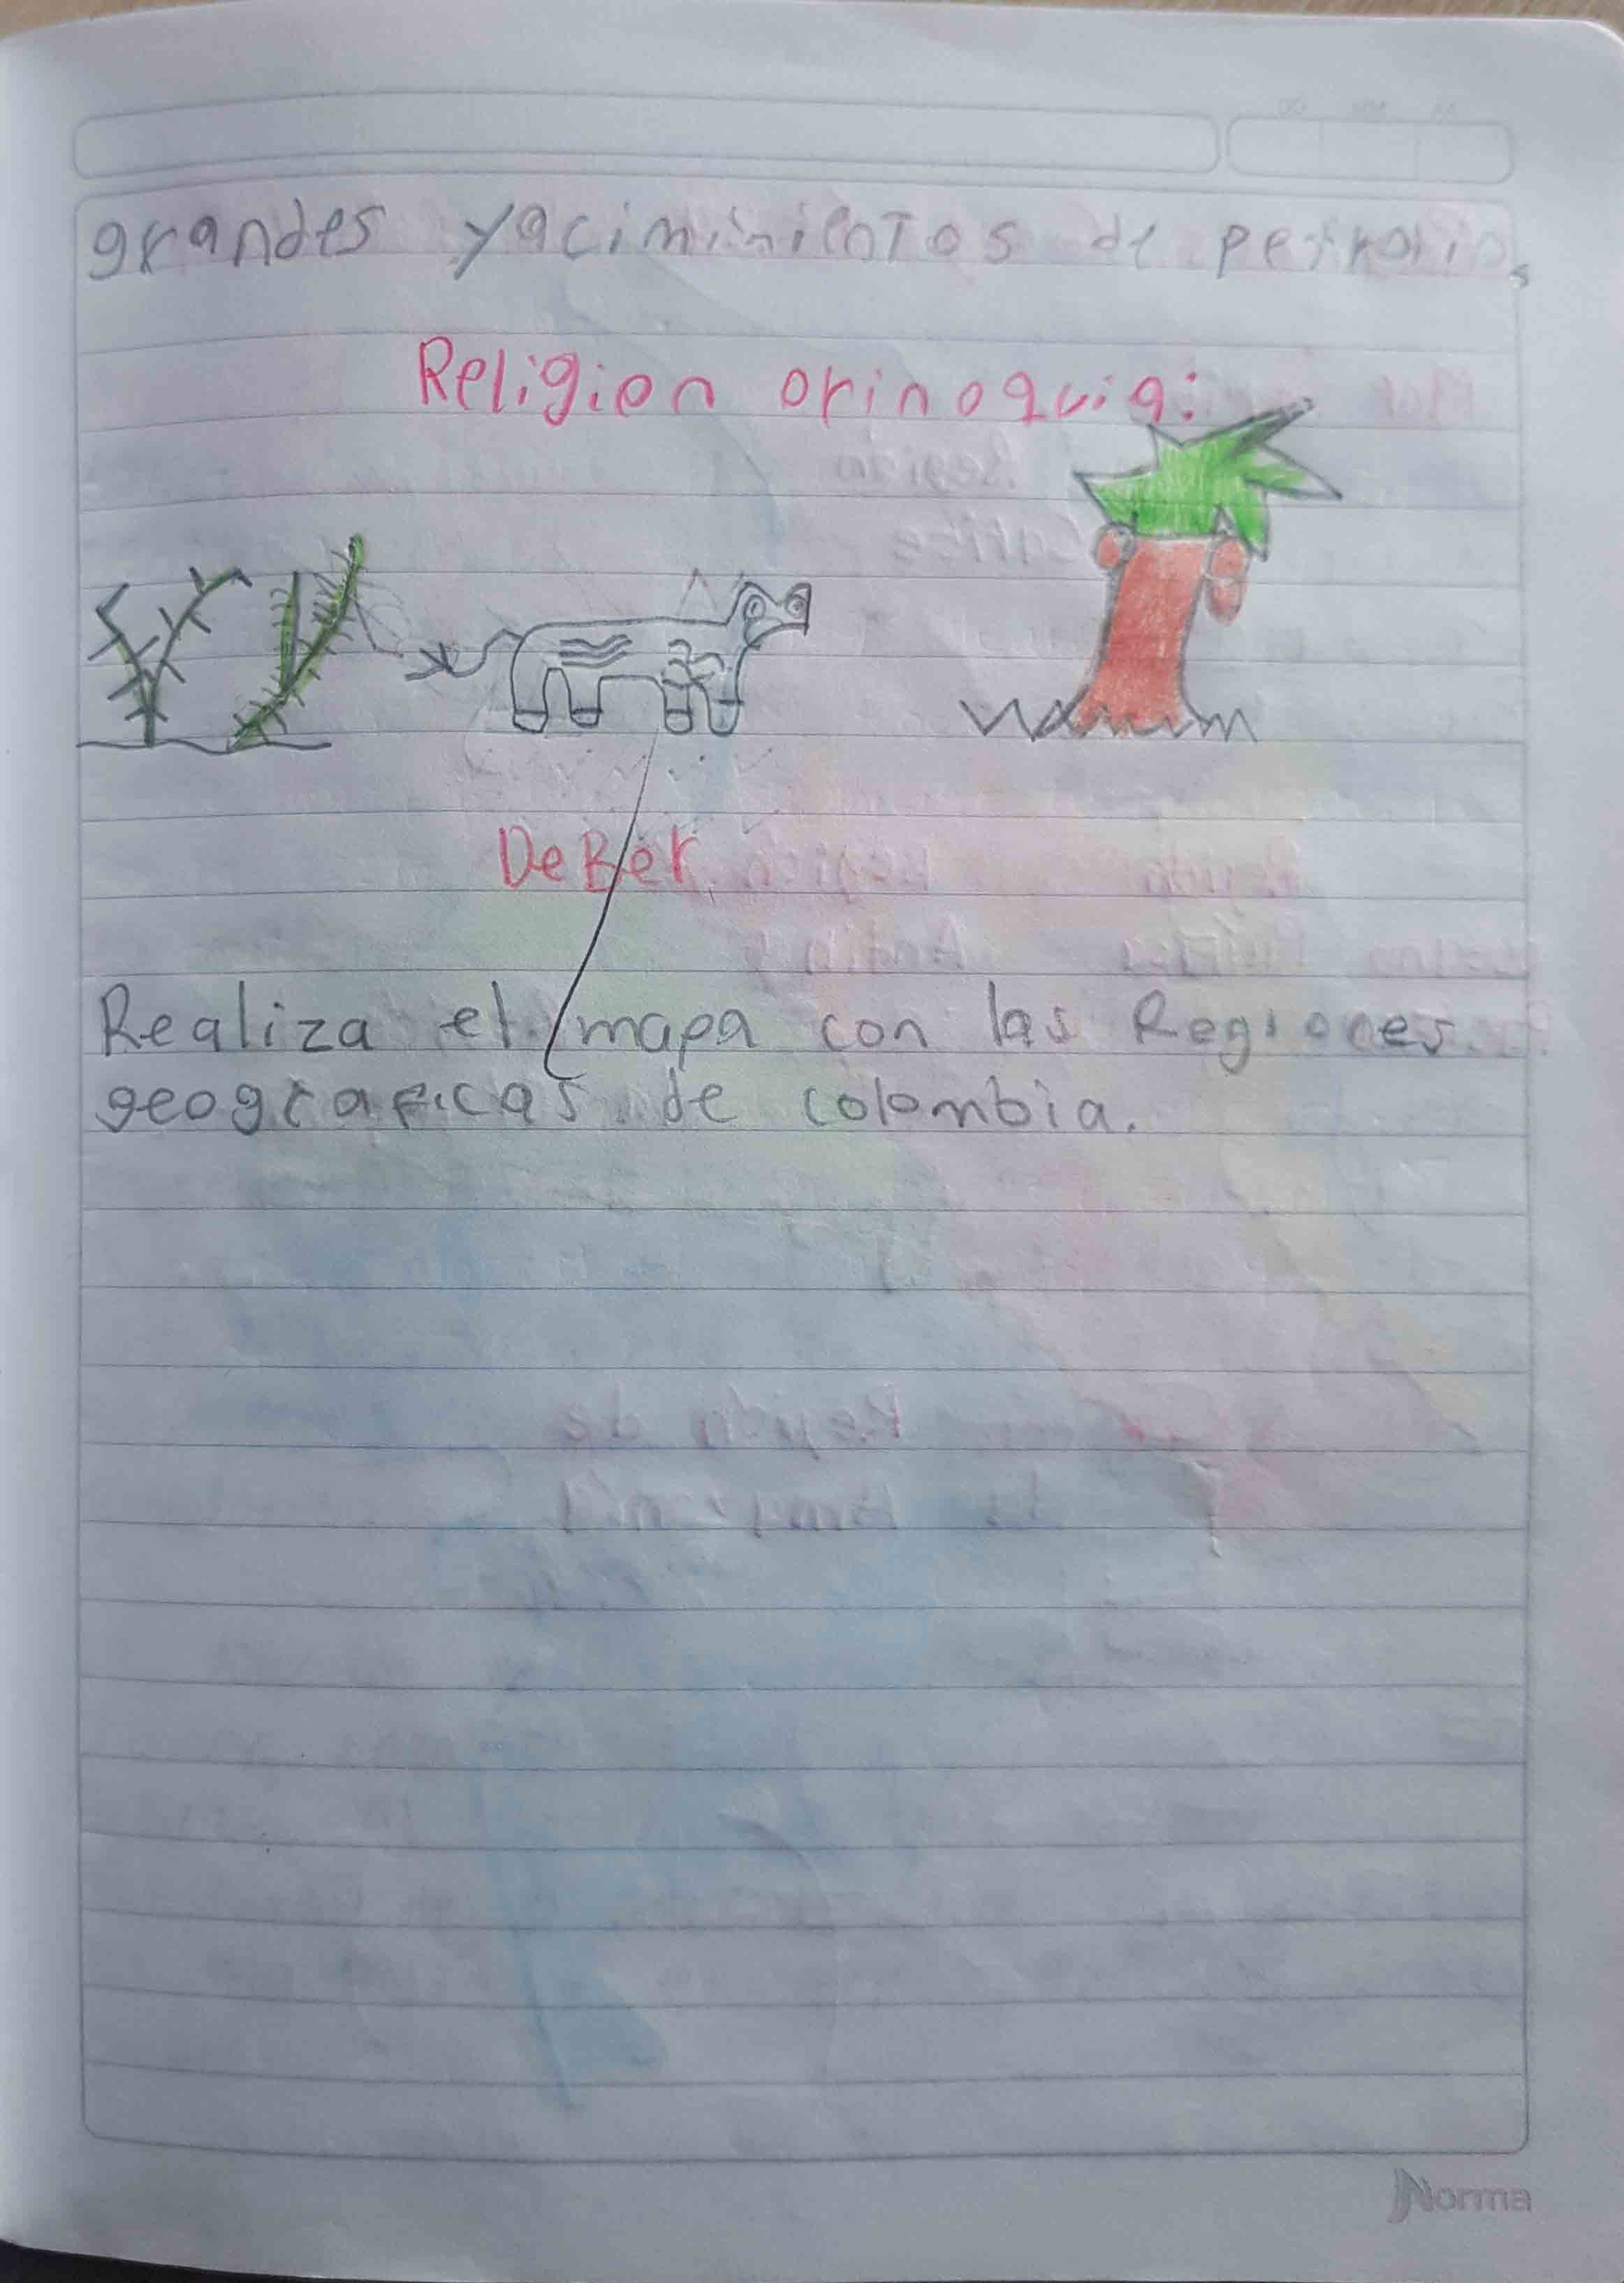 grandes yaciminientos de petrolio,
Religion orinoquia:
DeBer
Realiza el mapa con las Regiones
geograficas de colombia.
Norma